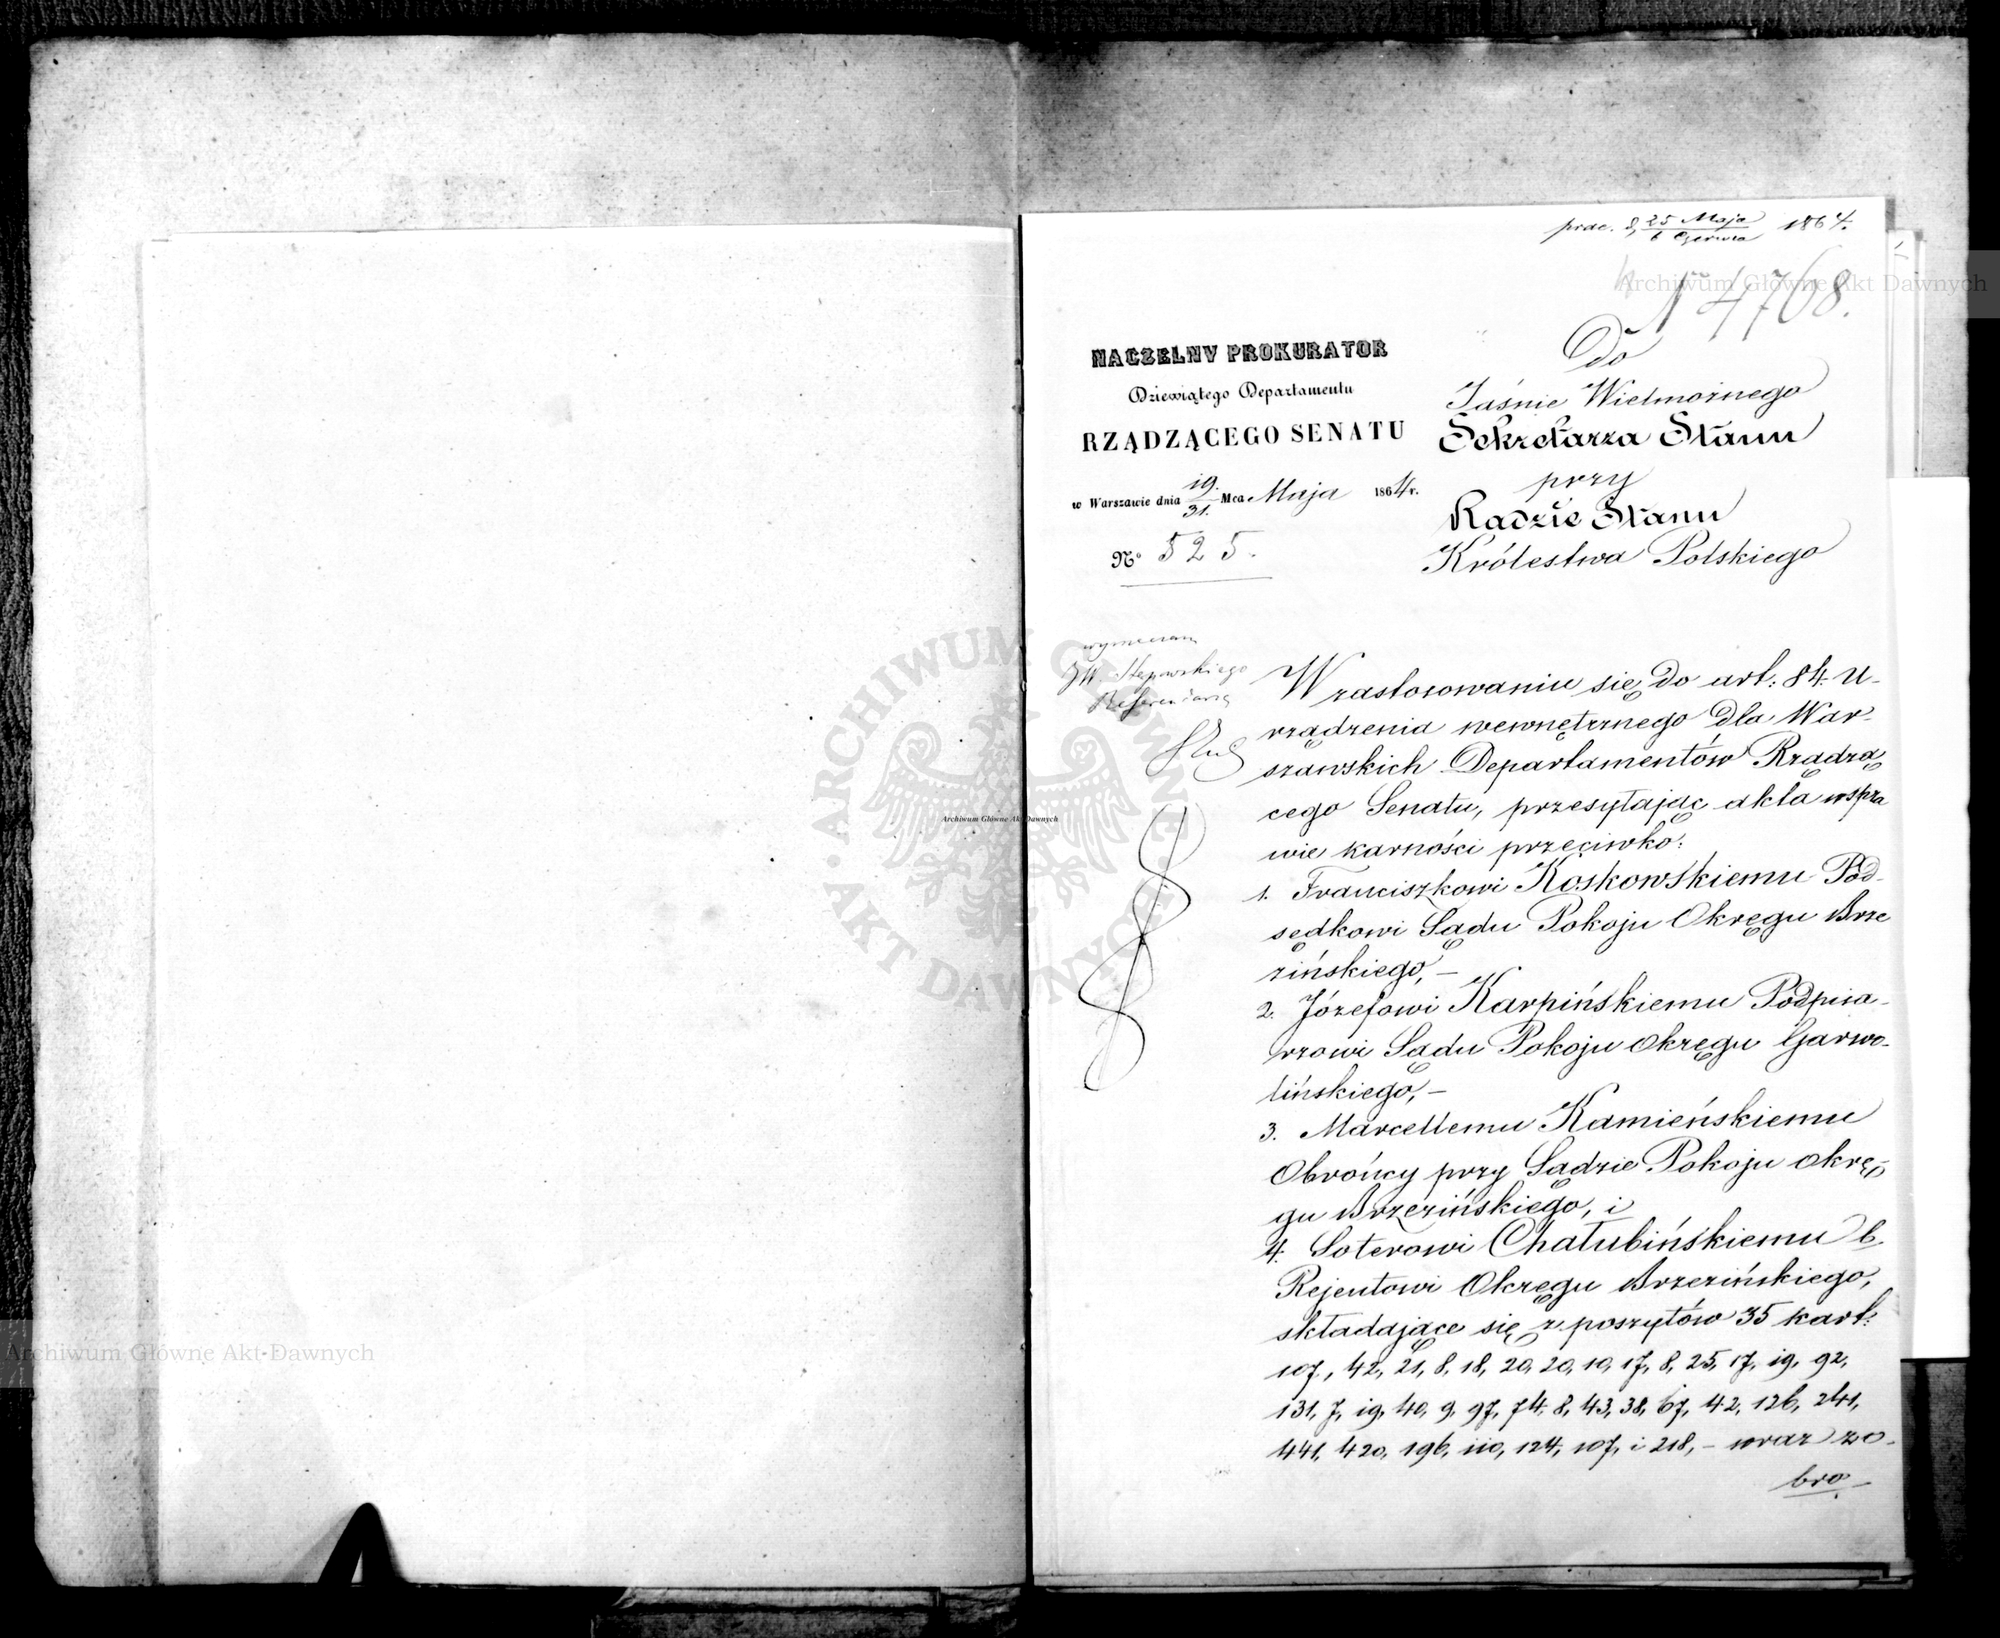 prae. d. 25 Maja / 6 Czerwca 1864.
N 4768.
NACZELNY PROKURATOR
Dziewiątego Departamentu
RZĄDZĄCEGO SENATU
w Warszawie dnia 19/31. Mca Maja 1864 r.
No 525.
Do
Jaśnie Wielmożnego
Sekretarza Stanu
przy
Radzie Stanu
Królestwa Polskiego
Referendarza
W zastosowaniu się do art: 84. U-
rządzenia wewnętrznego dla War-
szawskich Departamentów Rządzą
cego Senatu, przesyłając akta w spra
wie karności przeciwko:
1. Franciszkowi Koskowskiemu Pod-
sędkowi Sądu Pokoju Okręgu Brze
zińskiego, –
2. Józefowi Karpińskiemu Podpisa-
rzowi Sądu Pokoju Okręgu Garwo-
lińskiego, –
3. Marcellemu Kamieńskiemu
Obrońcy przy Sądzie Pokoju Okrę-
gu Brzezińskiego, i
4. Soterowi Chałubińskiemu b.
Rejentowi Okręgu Brzezińskiego,
składające się z poszytów 35 kart:
107, 42, 21, 8, 18, 20, 20, 10, 17, 8, 25, 17, 19, 92,
131, 7, 19, 40, 9, 97, 74, 8, 43, 38, 67, 42, 126, 241,
441, 420, 196, 110, 124, 107, i 218, – wraz z o-
bro
Archiwum Główne Akt Dawnych
ARCHIWUM GŁÓWNE AKT DAWNYCH
Archiwum Główne Akt Dawnych
Archiwum Główne Akt Dawnych